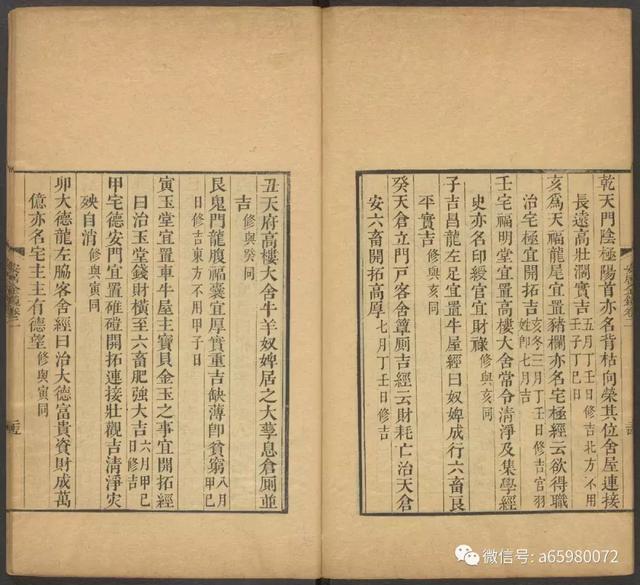 乾天門陰極陽首亦名背枯向榮其位舍屋連接
長遠高壯濶實吉五月丁壬日修吉北方不用壬子丁巳日
亥爲天福龍尾宜置豬欄亦名宅極經云欲得職
治宅極宜開拓吉亥冬三月丁壬日修吉宮羽姓卽七月吉
壬宅福明堂宜置高樓大舍常令清淨及集學經
史亦名印綬宮宜財祿修與亥同
子吉昌龍左足宜置牛屋經曰奴婢成行六畜良
平實吉修與亥同
癸天倉立門戸客舍簟厠吉經云財耗亡治天倉
安六畜開拓高厚七月丁壬日修吉
丑天府高樓大舍牛羊奴婢居之大孳息倉厠並
吉修與癸同
艮鬼門龍腹福囊宜厚實重吉缺薄卽貧窮八月甲巳
日修吉東方不用甲子日
寅玉堂宜置車牛屋主寶貝金玉之事宜開拓經
曰治玉堂錢財橫至六畜肥強大吉六月甲巳日修吉
甲宅德安門宜置碓磑開拓連接壯觀吉清淨灾
殃自消修與寅同
卯大德龍左脇客舍經曰治大德富貴資財成萬
億亦名宅主主有德望修與寅同
微信号: a65980072